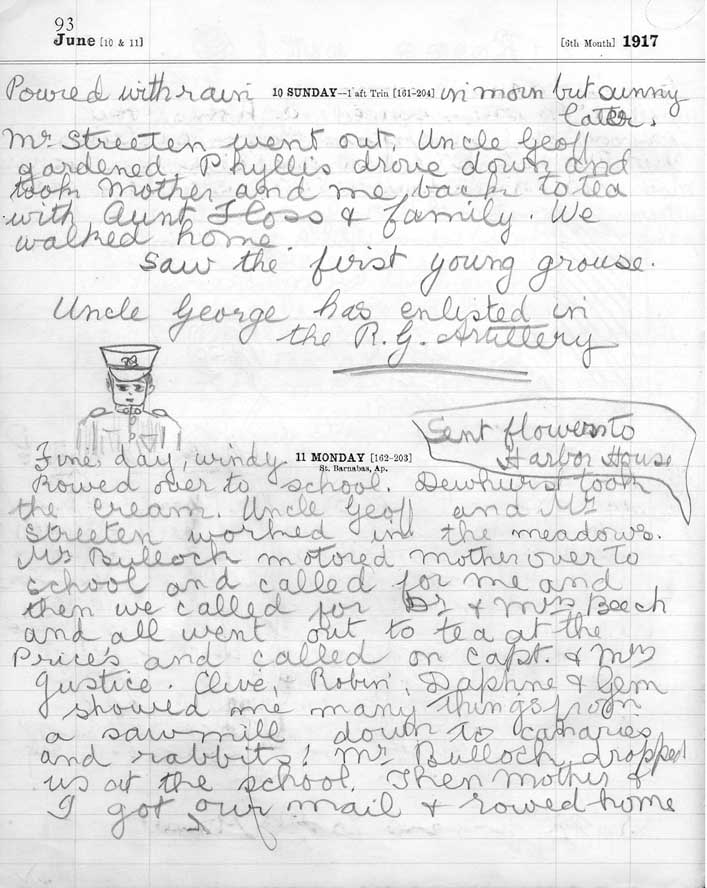 93
June [10 & 11] [6th Month] 1917
Poured with rain 10 SUNDAY—1 aft Trin [161-204] in morn but sunny
later.
Mr Streeten went out Uncle Geoff
gardened. Phyllis drove down and
took Mother and me back to tea
with Aunt Floss & family. We
walked home.
Saw the first young grouse.
Uncle George has enlisted in
the R.G. Artillery
Sent flowers to
Harbor House
Fine day, windy 11 MONDAY [162-203]
St. Barnabas, Ap.
Rowed over to school. Dewhurst took
the cream. Uncle Geoff and Mr
Streeten worked in the meadows.
Mr Bulloch motored mother over to
school and called for me and
then we called for Dr & Mrs Beech
and all went out to tea at the
Price's and called on Capt. & Mrs
Gustice. Clive, Robin, Daphne & Gem
showed me many things from
a sawmill down to canaries
and rabbits! Mr Bulloch dropped
us at the school. Then Mother &
I got our mail & rowed home